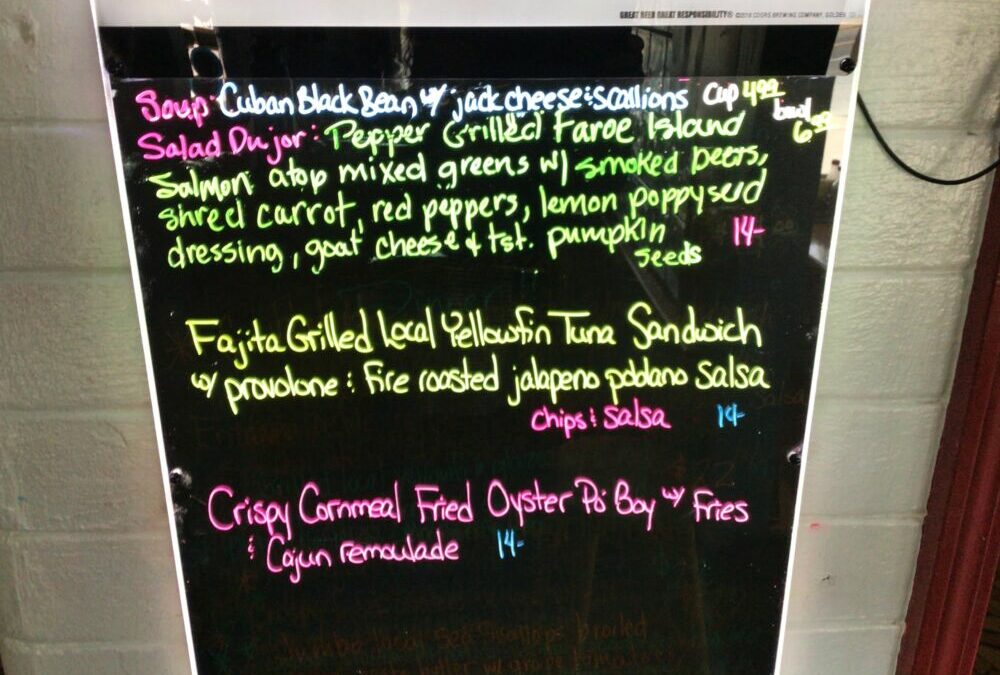 GREAT BEER GREAT RESPONSIBILITY® ©2018 COORS BREWING COMPANY, GOLDEN, CO
Soup: Cuban Black Bean w/ jack cheese & scallions Cup 4.99
bowl 6.99
Salad Du jor: Pepper Grilled Faroe Island
Salmon atop mixed greens w/ smoked beets,
shred carrot, red peppers, lemon poppyseed
dressing, goat cheese & tst. pumpkin 14-
seeds
Fajita Grilled Local Yellowfin Tuna Sandwich
w/ provolone & fire roasted jalapeno poblano salsa
chips & salsa 14-
Crispy Cornmeal Fried Oyster Po Boy w/ Fries
& Cajun remoulade 14-